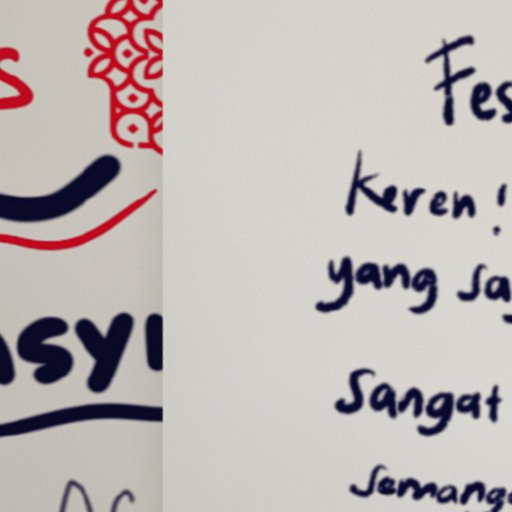 s
asy
Fes
Keren !
yang sa
Sangat
Semanga